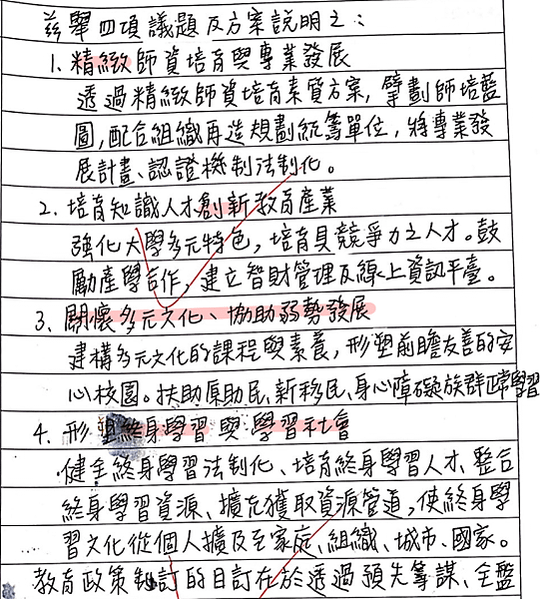 茲舉四項議題及方案說明之：
1. 精緻師資培育與專業發展
透過精緻師資培育素質方案，擘劃師培藍
圖，配合組織再造規劃統籌單位，將專業發
展計畫、認證機制法制化。
2. 培育知識人才創新教育產業
強化大學多元特色，培育具競爭力之人才。鼓
勵產學合作，建立智財管理及線上資訊平臺。
3. 關懷多元文化、協助弱勢發展
建構多元文化的課程與素養，形塑前瞻友善的安
心校園。扶助原助民、新移民、身心障礙族群正常學習
4. 形塑終身學習與學習社會
健全終身學習法制化、培育終身學習人才、整合
終身學習資源、擴充獲取資源管道，使終身學
習文化從個人擴及至家庭、組織、城市、國家。
教育政策制訂的目訂在於透過預先籌謀、全盤